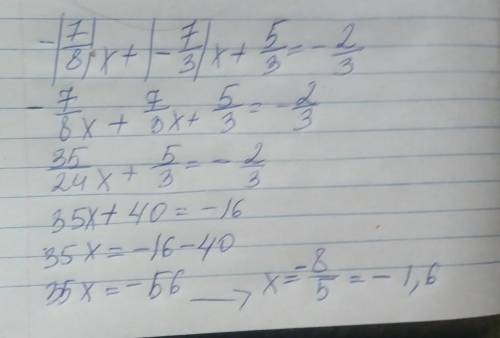 -|7/8|x + |-7/3|x + 5/3 = -2/3
-7/8x + 7/3x + 5/3 = -2/3
35/24x + 5/3 = -2/3
35x + 40 = -16
35x = -16 - 40
35x = -56 → x = -8/5 = -1,6